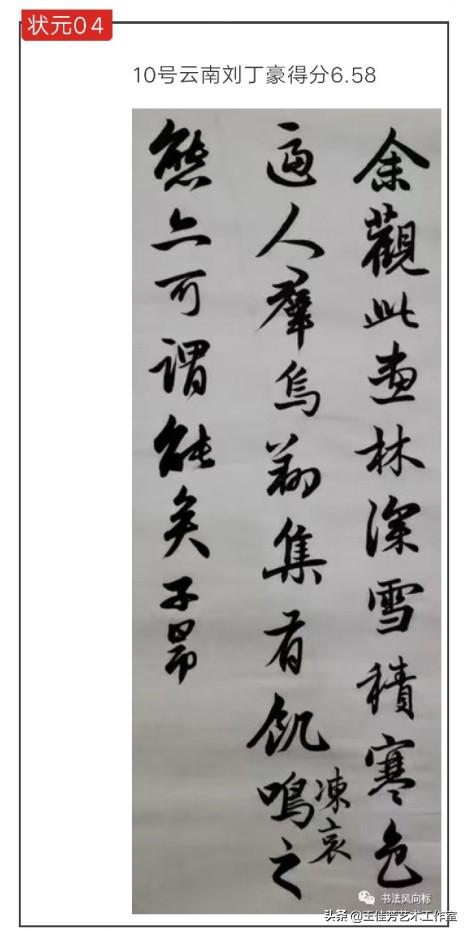 状元04
10号云南刘丁豪得分6.58
余觀此畫林深雪積寒色
逼人羣烏翔集有飢凍哀鳴之
態亦可謂能矣子昂
书法风向标
头条 @王佳芳艺术工作室